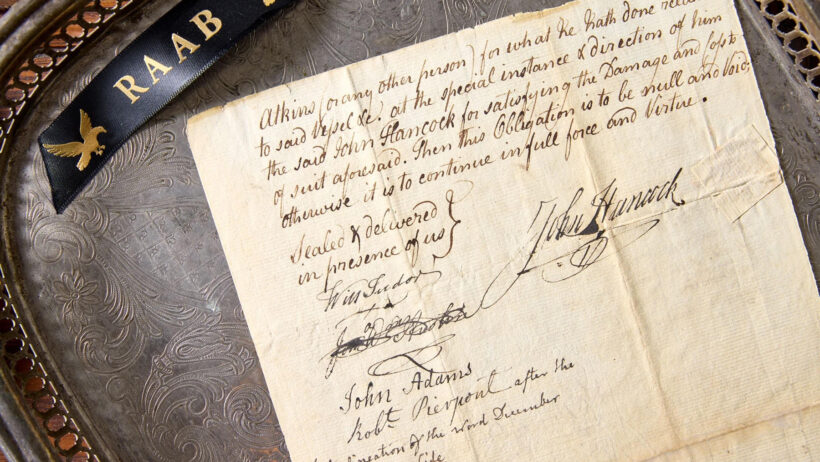 RAAB
Atkins (or any other person) for what he hath done
to said Vessel &c. at the special instance & direction of him
the said John Hancock for satisfying the Damage and Cost
of suit aforesaid. Then this Obligation is to be null and Void;
otherwise it is to continue in full force and Virtue.
Sealed & delivered
in presence of us
John Hancock
Will Tudor
John Adams
Robt. Pierpont after the
of the word December